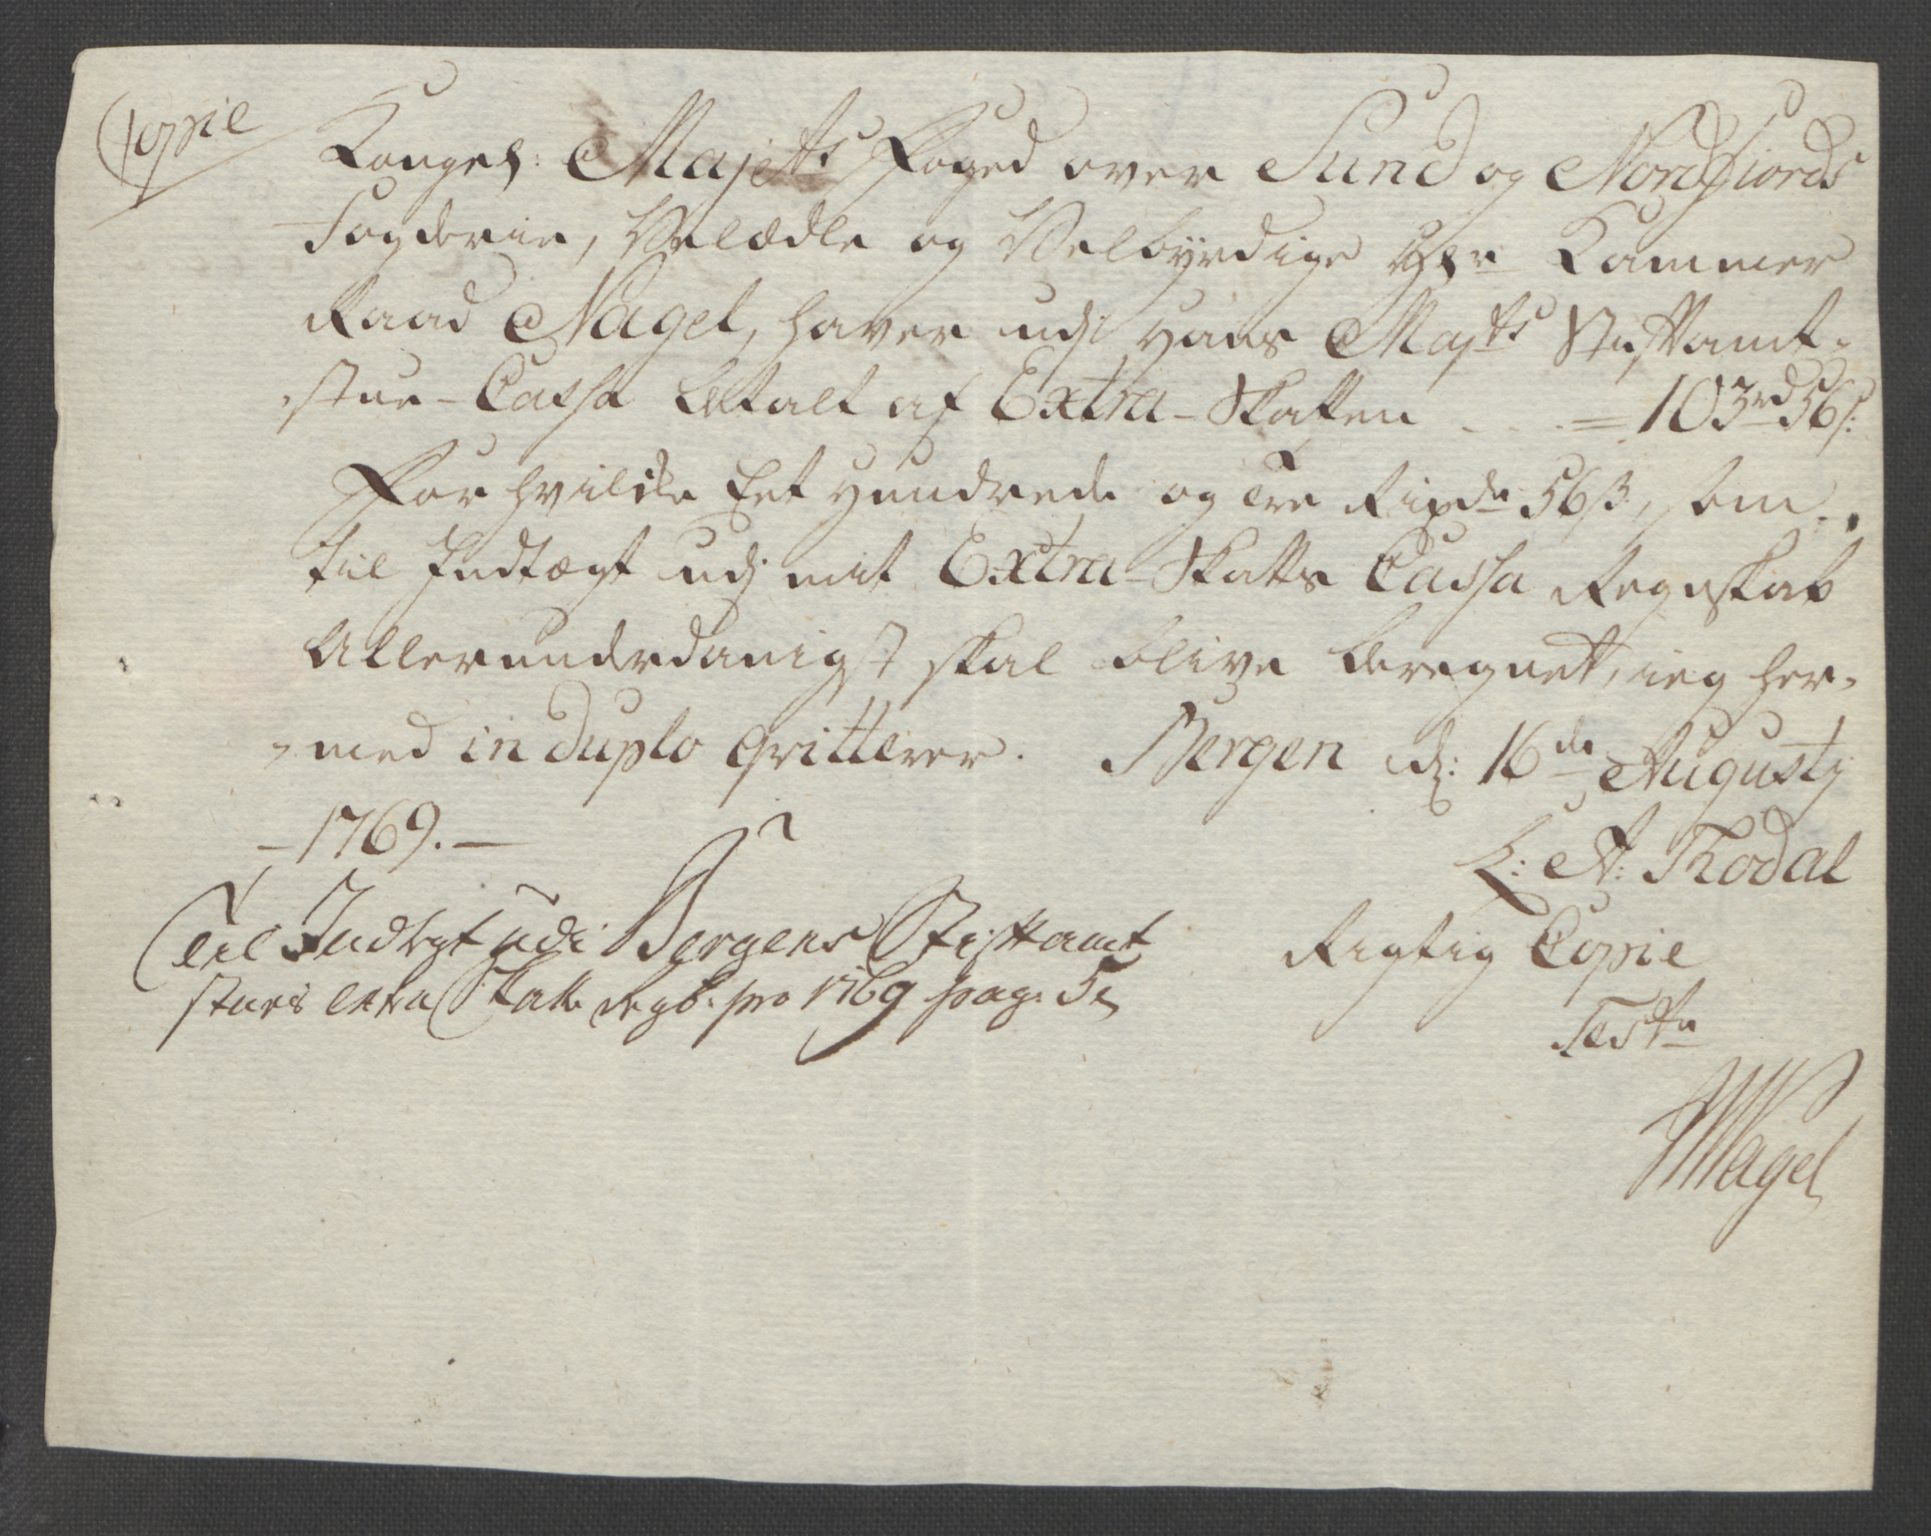 Copie
Kongel: Majts Foged over Sund og Nordfiords
Fogderie, Velædle og Velbyrdige Hr Kammer
Raad Nagel, haver udj Hans Majts Stiftamt-
stue-Cassa betalt af Extra-Skatten - - - = 103rd 56s:
For hvilke Eet Hundrede og Tre Rixdr 56s, som
til Indtægt udj mit Extra-Skatts Cassa Regnskab
Allerunderdanigst skal blive beregnet, ieg her-
-med in duplo qvitterer. Bergen d: 16de Augustj
-1769.-
L: A: Thodal
Til Indtegt udi Bergens Stiftamt
stues extra Skatt Regb: pro 1769 pag: 5
Rigtig Copie
Test
Nagel